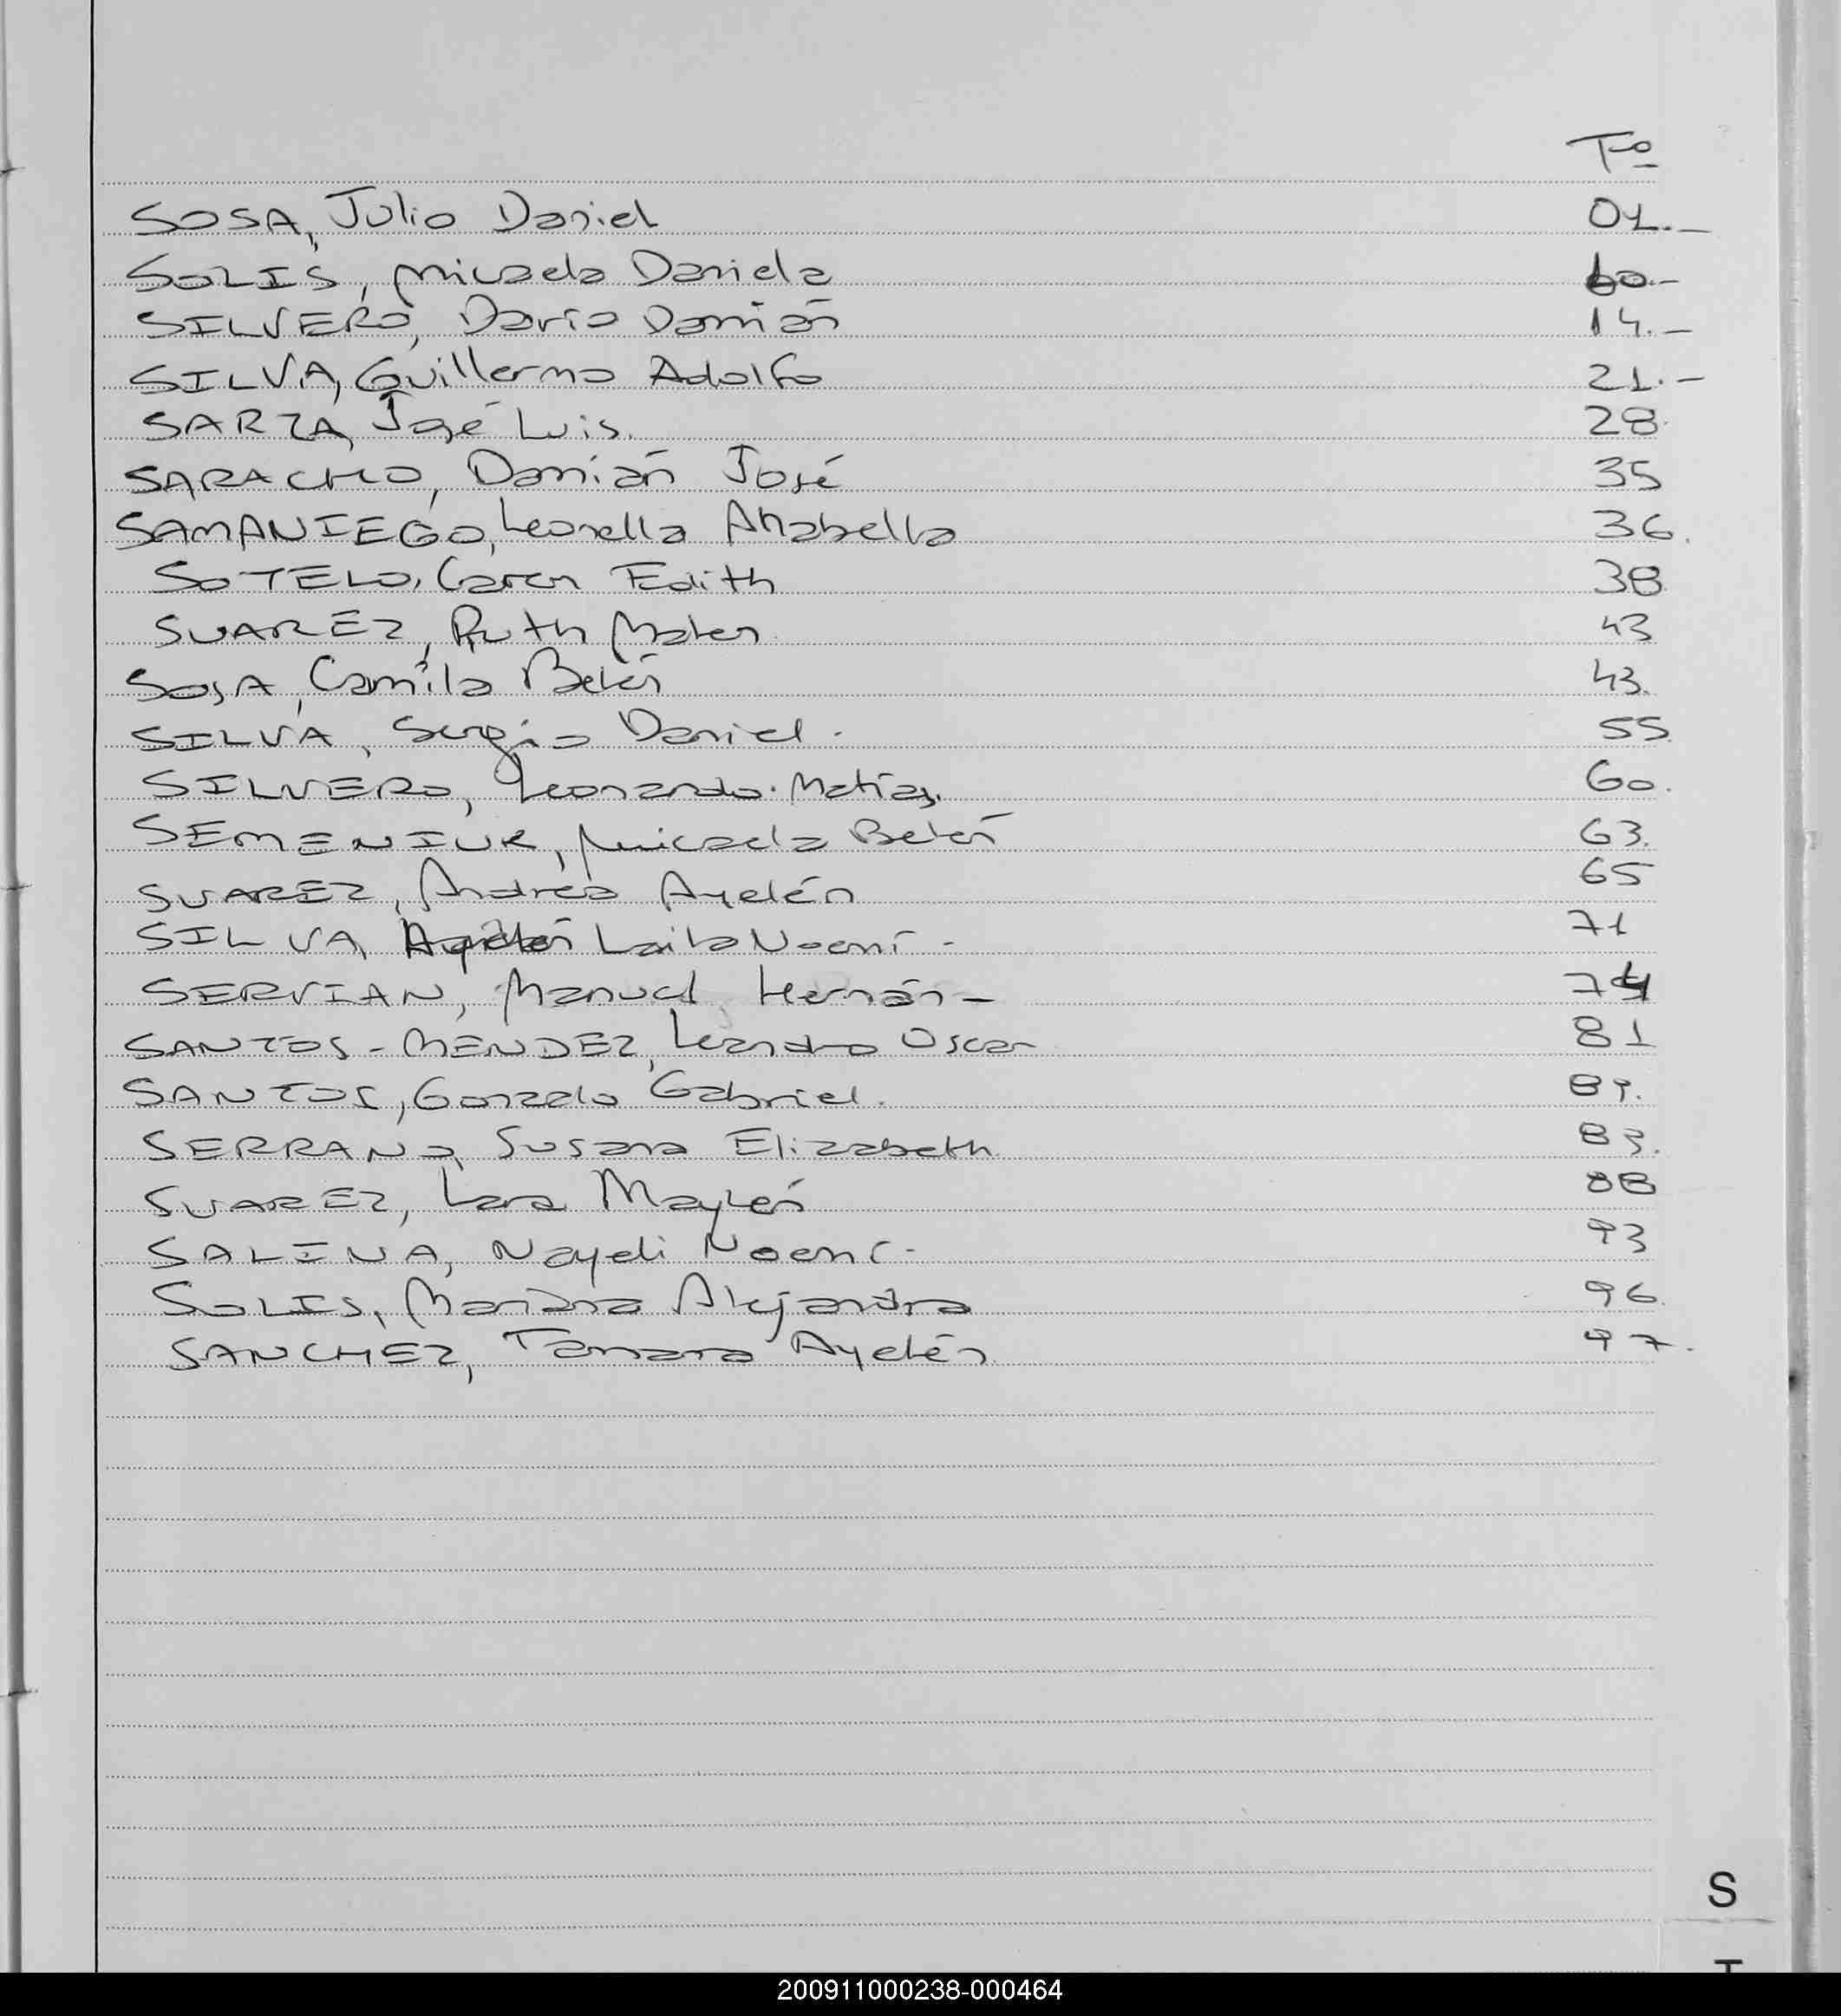 Fº
SOSA, Julio Daniel 01.-
SOLIS, Micaela Daniela 10.-
SILVERO, Darío Damián 14.-
SILVA, Guillermo Adolfo 21.-
SARZA, José Luis. 28.
SARACHO, Damián José 35
SAMANIEGO, Leonella Anabella 36.
SOTELO, Caren Edith 38.
SUAREZ, Ruth 43
SOSA, Camila Belén 43.
SILVA, Sergio Daniel. 55.
SILVERO, Leonardo Matías. 60.
SEMENIUK, Micaela Belén 63.
SUAREZ, Andrea Ayelén 65
SILVA, Laila Noemí - 71
SERVIAN, Manuel Hernán - 74
SANTOS-MENDEZ, Leandro Oscar 81
SANTOS, Gonzalo Gabriel.
SERRANO, Susana Elizabeth 83.
SUAREZ, Lara Maylén 88
SALINA, Nayeli Noemí- 93
SOLIS, Mariana Alejandra 96.
SANCHEZ, Tamara Ayelén 97.
S
T
200911000238-000464